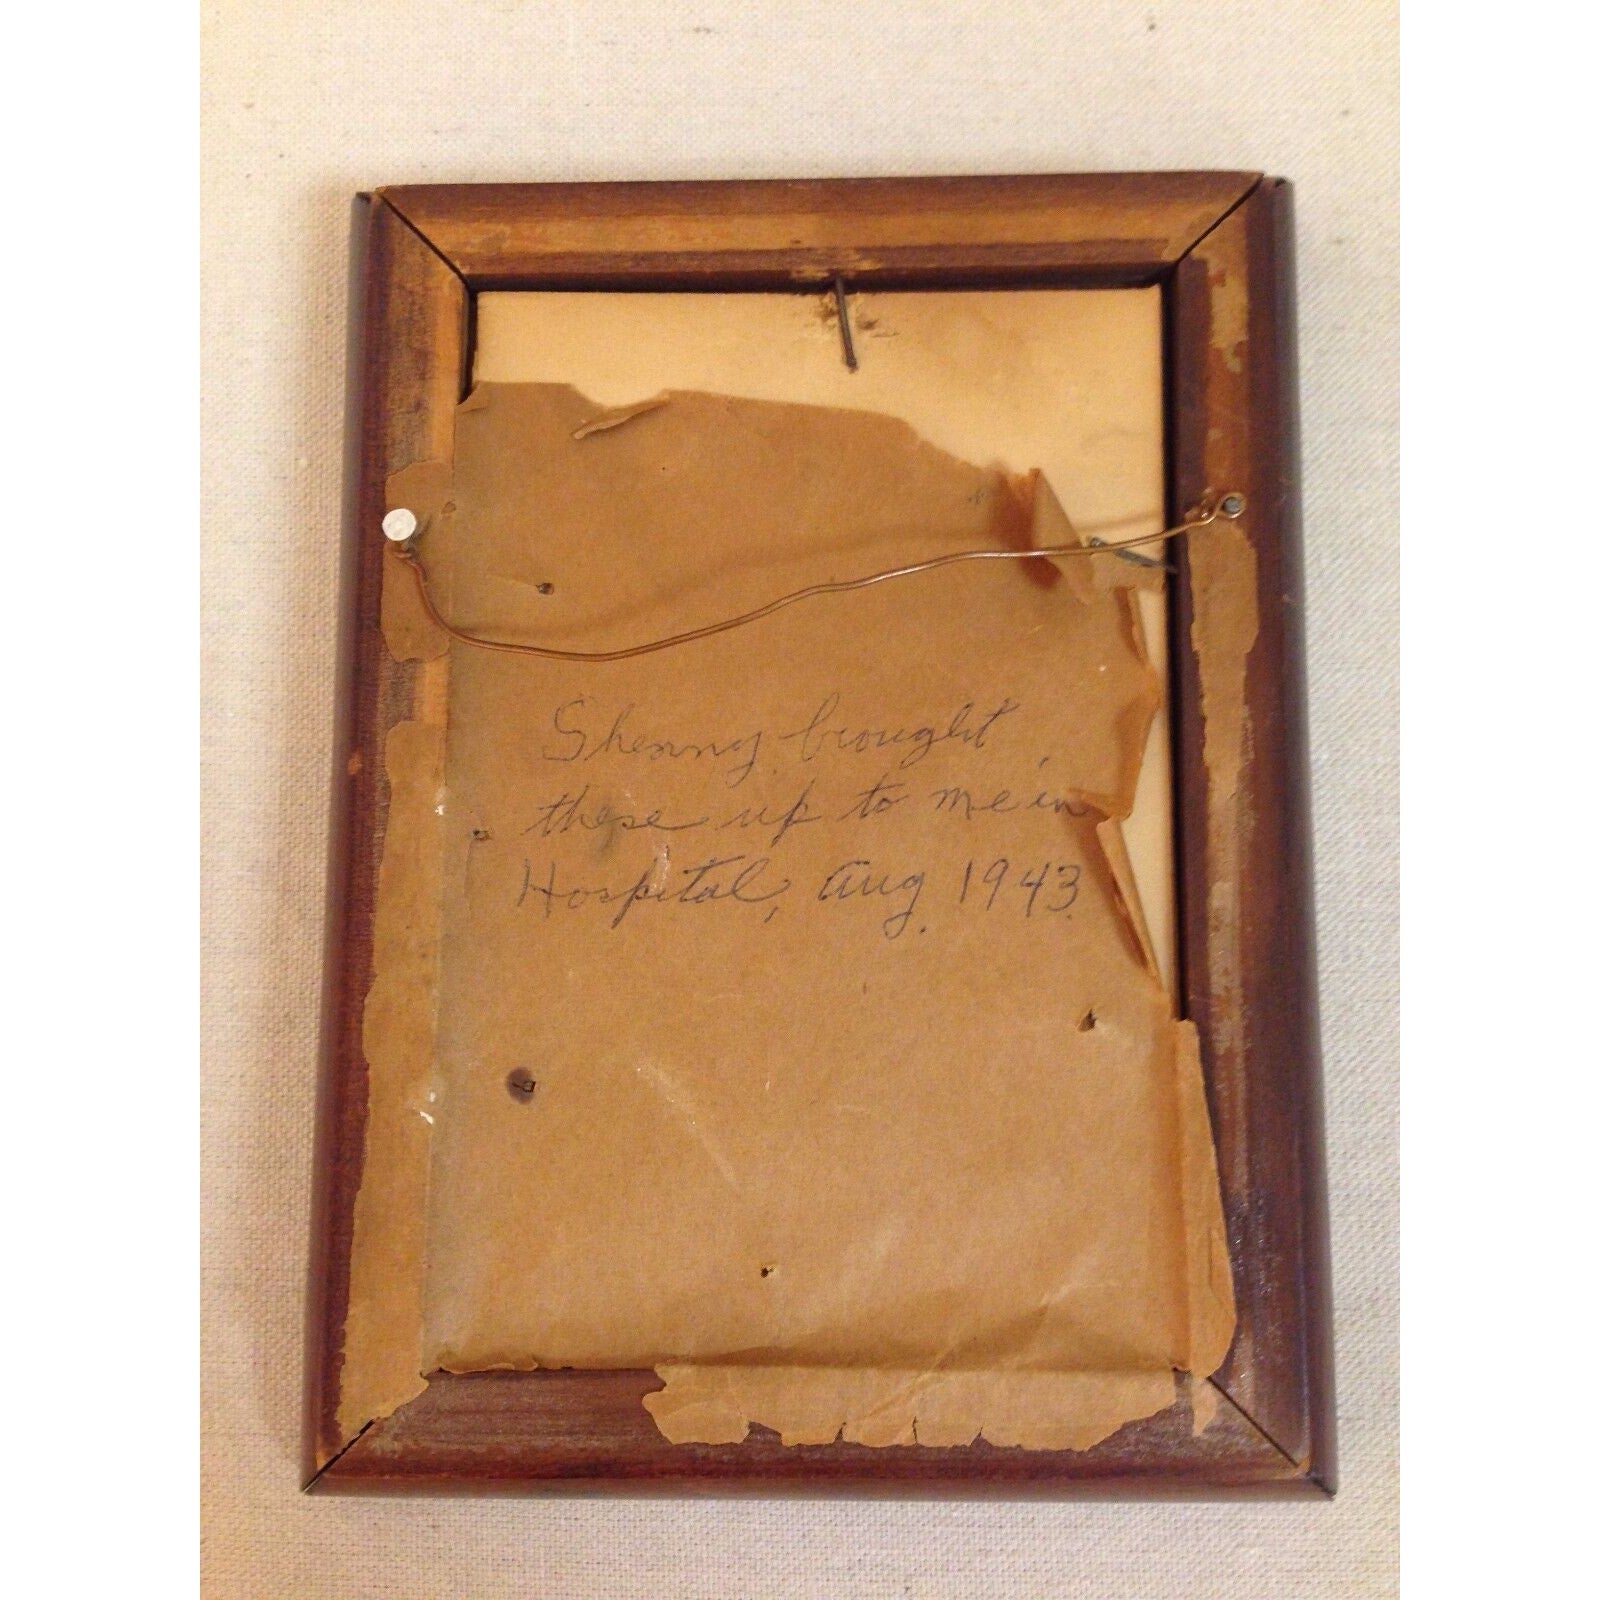 Shenny brought
these up to me in
Hospital, Aug. 1943.